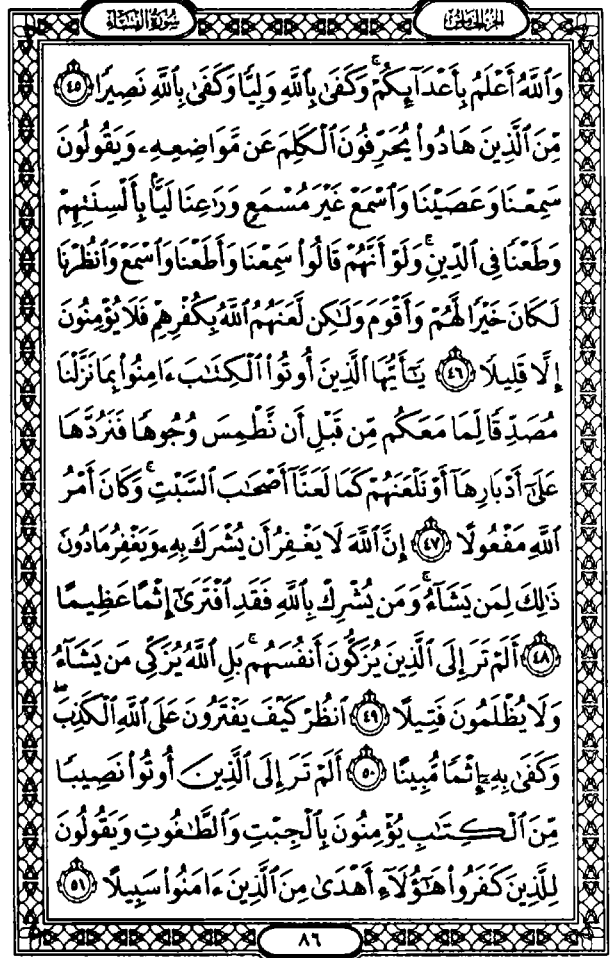 سُورَةُ النِّسَاءِ
الجُزءُ الخَامِسُ
وَٱللَّهُ أَعْلَمُ بِأَعْدَآئِكُمْ ۚ وَكَفَىٰ بِٱللَّهِ وَلِيًّا وَكَفَىٰ بِٱللَّهِ نَصِيرًا ٤٥
مِّنَ ٱلَّذِينَ هَادُوا۟ يُحَرِّفُونَ ٱلْكَلِمَ عَن مَّوَاضِعِهِۦ وَيَقُولُونَ
سَمِعْنَا وَعَصَيْنَا وَٱسْمَعْ غَيْرَ مُسْمَعٍ وَرَٰعِنَا لَيًّۢا بِأَلْسِنَتِهِمْ
وَطَعْنًا فِى ٱلدِّينِ ۚ وَلَوْ أَنَّهُمْ قَالُوا۟ سَمِعْنَا وَأَطَعْنَا وَٱسْمَعْ وَٱنظُرْنَا
لَكَانَ خَيْرًا لَّهُمْ وَأَقْوَمَ وَلَٰكِن لَّعَنَهُمُ ٱللَّهُ بِكُفْرِهِمْ فَلَا يُؤْمِنُونَ
إِلَّا قَلِيلًا ٤٦ يَٰٓأَيُّهَا ٱلَّذِينَ أُوتُوا۟ ٱلْكِتَٰبَ ءَامِنُوا۟ بِمَا نَزَّلْنَا
مُصَدِّقًا لِّمَا مَعَكُم مِّن قَبْلِ أَن نَّطْمِسَ وُجُوهًا فَنَرُدَّهَا
عَلَىٰٓ أَدْبَارِهَآ أَوْ نَلْعَنَهُمْ كَمَا لَعَنَّآ أَصْحَٰبَ ٱلسَّبْتِ ۚ وَكَانَ أَمْرُ
ٱللَّهِ مَفْعُولًا ٤٧ إِنَّ ٱللَّهَ لَا يَغْفِرُ أَن يُشْرَكَ بِهِۦ وَيَغْفِرُ مَا دُونَ
ذَٰلِكَ لِمَن يَشَآءُ ۚ وَمَن يُشْرِكْ بِٱللَّهِ فَقَدِ ٱفْتَرَىٰٓ إِثْمًا عَظِيمًا
٤٨ أَلَمْ تَرَ إِلَى ٱلَّذِينَ يُزَكُّونَ أَنفُسَهُم ۚ بَلِ ٱللَّهُ يُزَكِّى مَن يَشَآءُ
وَلَا يُظْلَمُونَ فَتِيلًا ٤٩ ٱنظُرْ كَيْفَ يَفْتَرُونَ عَلَى ٱللَّهِ ٱلْكَذِبَ ۖ
وَكَفَىٰ بِهِۦٓ إِثْمًا مُّبِينًا ٥٠ أَلَمْ تَرَ إِلَى ٱلَّذِينَ أُوتُوا۟ نَصِيبًا
مِّنَ ٱلْكِتَٰبِ يُؤْمِنُونَ بِٱلْجِبْتِ وَٱلطَّٰغُوتِ وَيَقُولُونَ
لِلَّذِينَ كَفَرُوا۟ هَٰٓؤُلَآءِ أَهْدَىٰ مِنَ ٱلَّذِينَ ءَامَنُوا۟ سَبِيلًا ٥١
٨٦